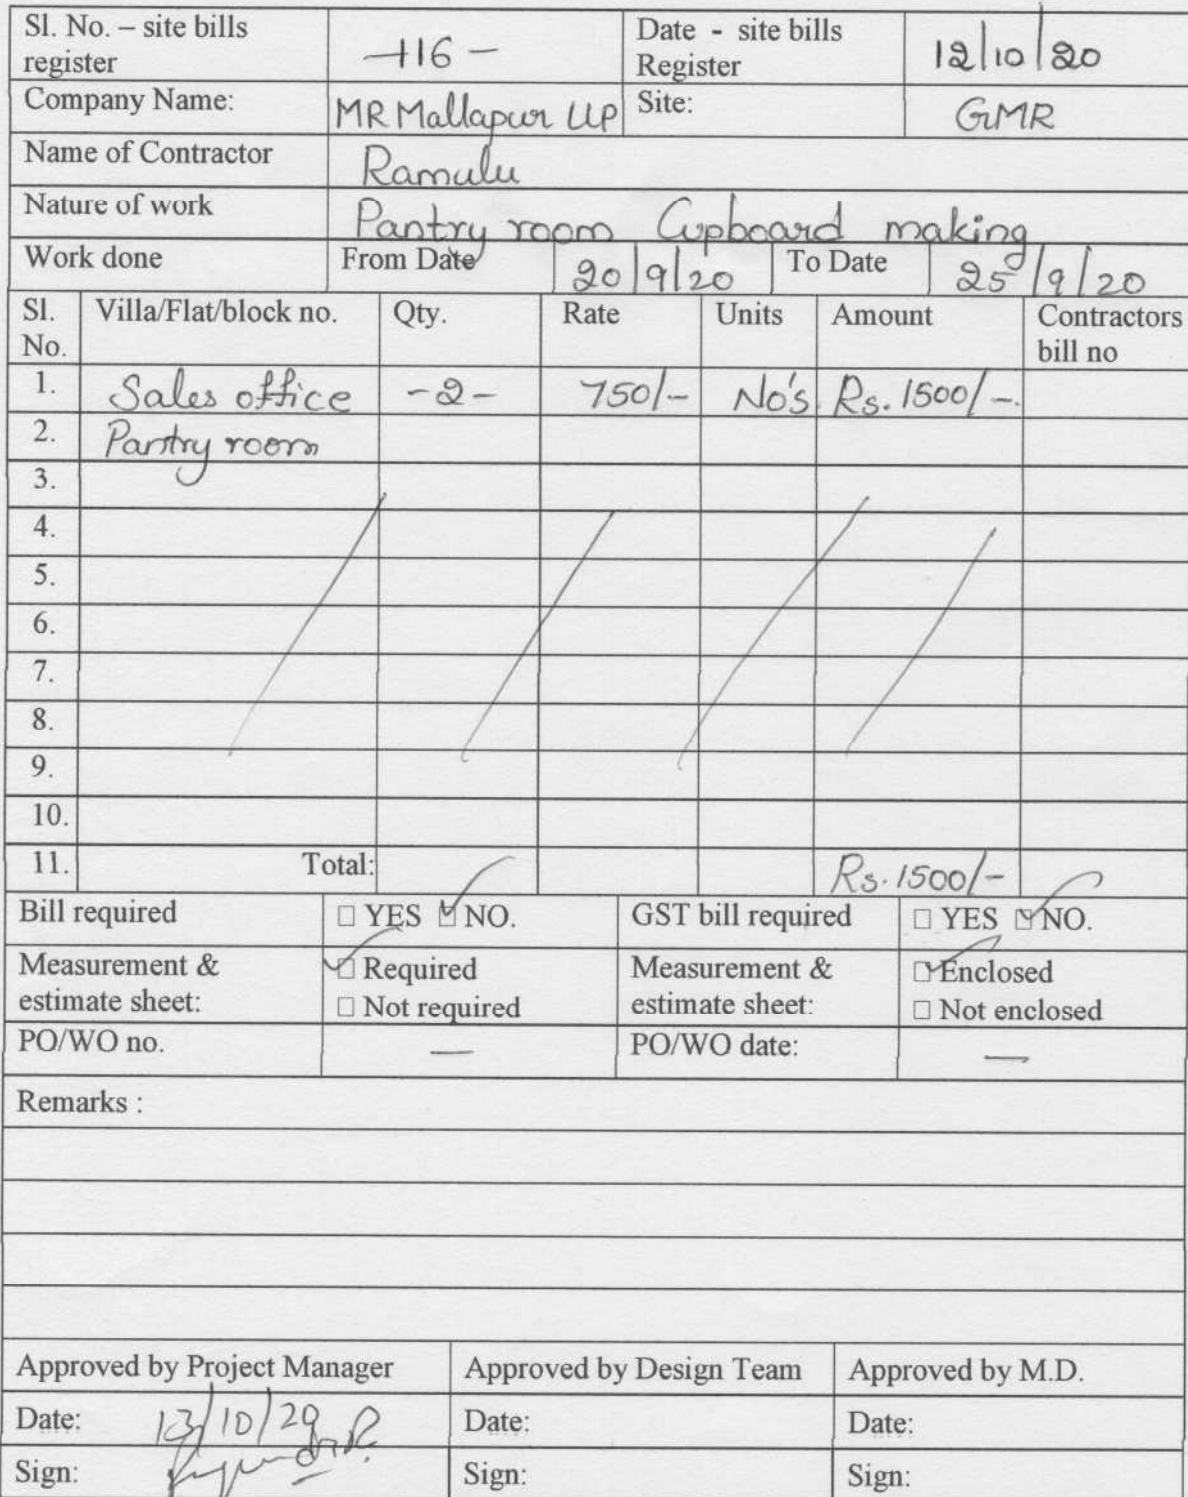 Sl. No. – site bills register -116- Date - site bills Register 12/10/20
Company Name: MR Mallapur LLP Site: GMR
Name of Contractor Ramulu
Nature of work Pantry room Cupboard making
Work done From Date 20/9/20 To Date 25/9/20
Sl. No. Villa/Flat/block no. Qty. Rate Units Amount Contractors bill no
1. Sales office -2- 750/- No's. Rs. 1500/-.
2. Pantry room
3.
4.
5.
6.
7.
8.
9.
10.
11. Total: Rs. 1500/-
Bill required □ YES ☑ NO. GST bill required □ YES ☑ NO.
Measurement & estimate sheet: ☑ Required Measurement & estimate sheet: ☑ Enclosed
□ Not required □ Not enclosed
PO/WO no. — PO/WO date: —
Remarks :
Approved by Project Manager Approved by Design Team Approved by M.D.
Date: 13/10/20 Date: Date:
Sign: Sign: Sign: